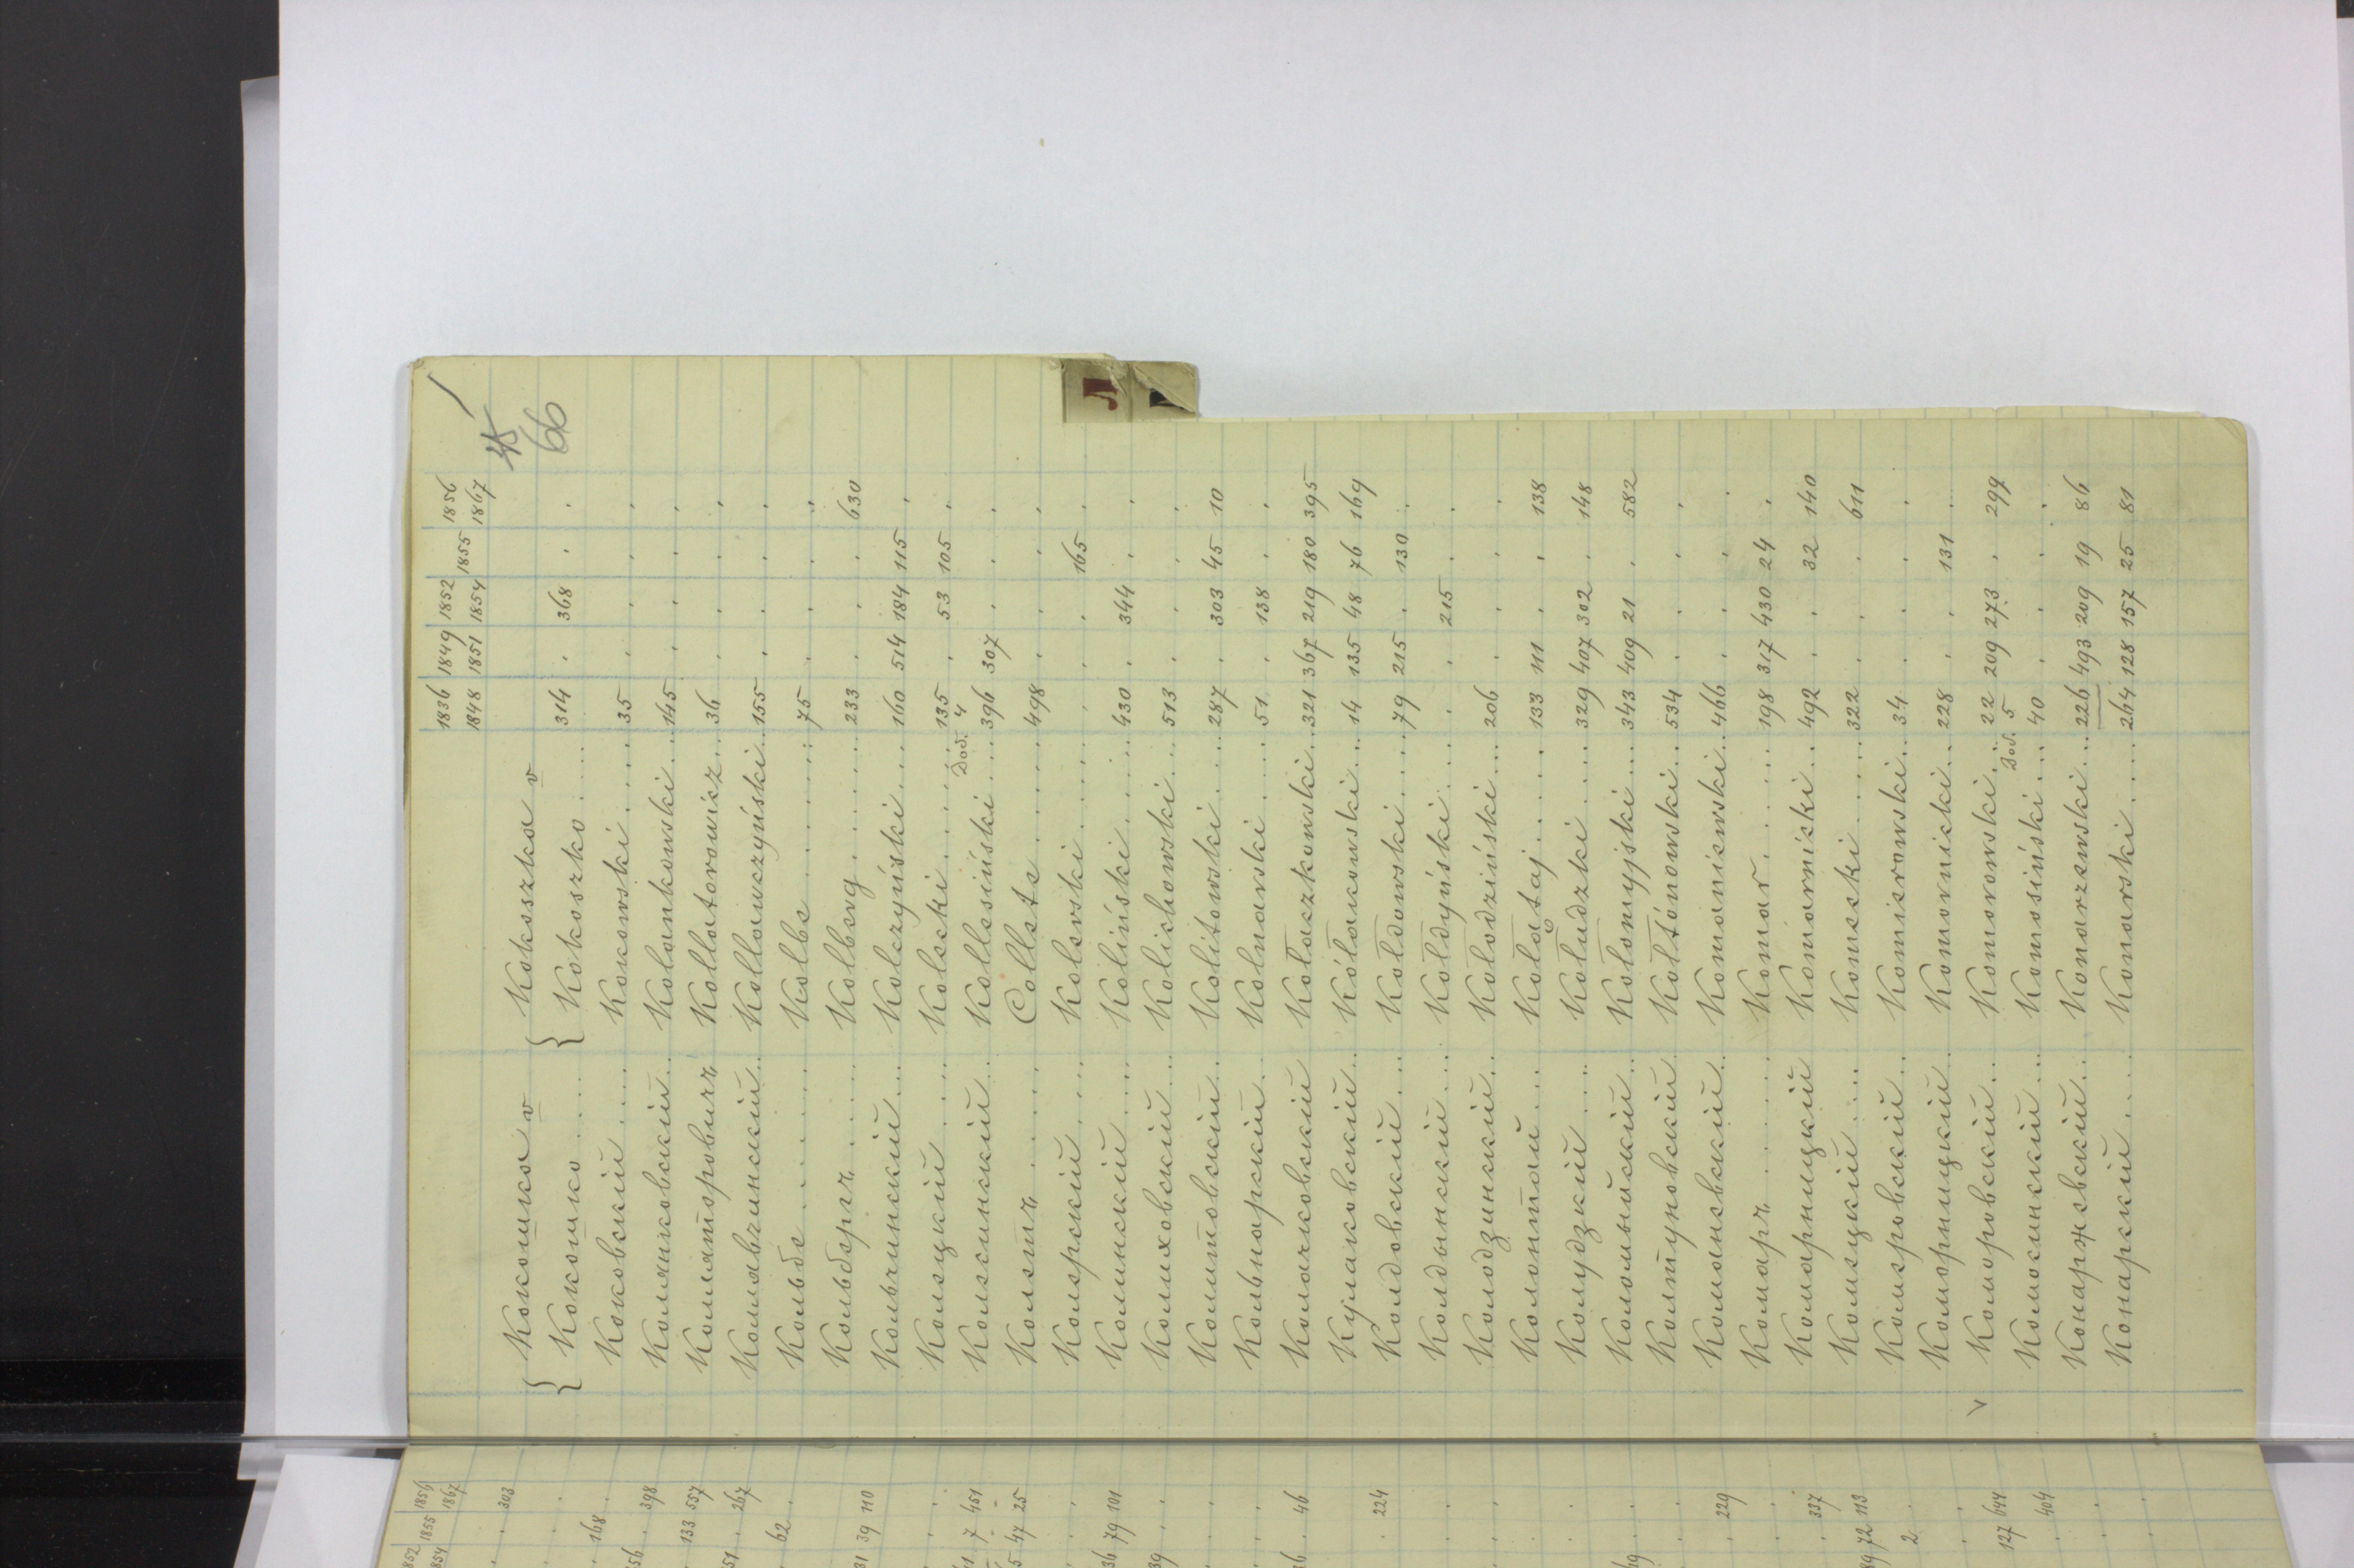 45
66
1836 1849 1852 1855 1856
1848 1851 1854 1867
{ Кокошка v { Kokoszka v
{ Кокошко . . . { Kokoszko . . . . 314 . 368 . .
Коковскій . . . . Kokowski . . . . 35 . . . .
Колянковскій . . Kolankowski . . 145 . . . .
Коллаторовичъ Kollatorowicz . . 36 . . . .
Колавчинскій . . Kollawczyński . . 155 . . . .
Кольбе . . . . . . Kolbe . . . . . . 75 . . . .
Кольбергъ . . . . . Kolberg . . . . . 233 . . . 630
Кольчинскій . . . Kolczyński . . . 160 514 184 115 .
Колецкій . . . . Kolecki . . . . . 135 . 53 105 .
Дод. 4
Колесинскій . . Kollesiński . . . 396 307 . . .
Колетъ . . . . . Collete . . . . . 498 . . . .
Колерскій . . . . Kolerski . . . . . . . 165 .
Колинскій . . . . Koliński . . . . . 430 . 344 . .
Колиховскій . . Kolichowski . . . 513 . . . .
Колитовскій . . . Kolitowski . . . . 287 . 303 45 10
Кольнарскій . . Kolnarski . . . . 51 . 138 . .
Колачковскій Kołaczkowski . . 321 367 219 180 395
Кулаковскій . . Kółakowski . . . 14 135 48 76 169
Колдовскій . . . Kołdowski . . . . 79 215 . 130 .
Колдынскій . . . Kołdyński . . . . . . 215 . .
Колодзинскій . . Kołodziński . . . 206 . . . .
Колонтай . . . . Kołątaj . . . . . . 133 111 . . 138
Колудзкій . . . . Kołudzki . . . . 329 407 302 . 148
Коломыйскій . . Kołomyjski . . . 343 409 21 . 582
Колтуновскій Kołtónowski . . 534 . . . .
Команевскій . . Komaniewski . . 466 . . . .
Комаръ . . . . . . Komar . . . . . . 198 317 430 24 .
Комарницкій Komarnicki . . 492 . . 32 140
Комецкій . . . . Komecki . . . . . 322 . . . 611
Комеровскій . . Komierowski . . 34 . . . .
Коморницкій . Komornicki . . 228 . . 131 .
v Коморовскій . . Komorowski . . . 22 209 273 . 299
Дод. 5
Комосинскій . . Komosiński . . . 40 . . . .
Конаржевскій . . Konarzewski . . . 226 493 209 19 86
Конарскій . . . . Konarski . . . . 264 128 157 25 81
Л
1852 1855 1856
1854 1867
. . 303
. .
. 168 .
56 . 398
. 133 557
51 . 267
. 62 .
31 39 110
. .
7 451
5 47 25
. .
36 79 101
39 . .
. .
. .
. 46
. .
. 224
. .
. .
. .
. .
. 229
. .
. 337
89 72 113
2 .
. .
127 644
. 404
. .
. .